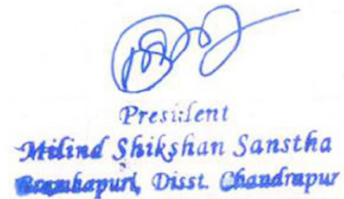 President
Milind Shikshan Sanstha
Bramhapuri, Disst. Chandrapur